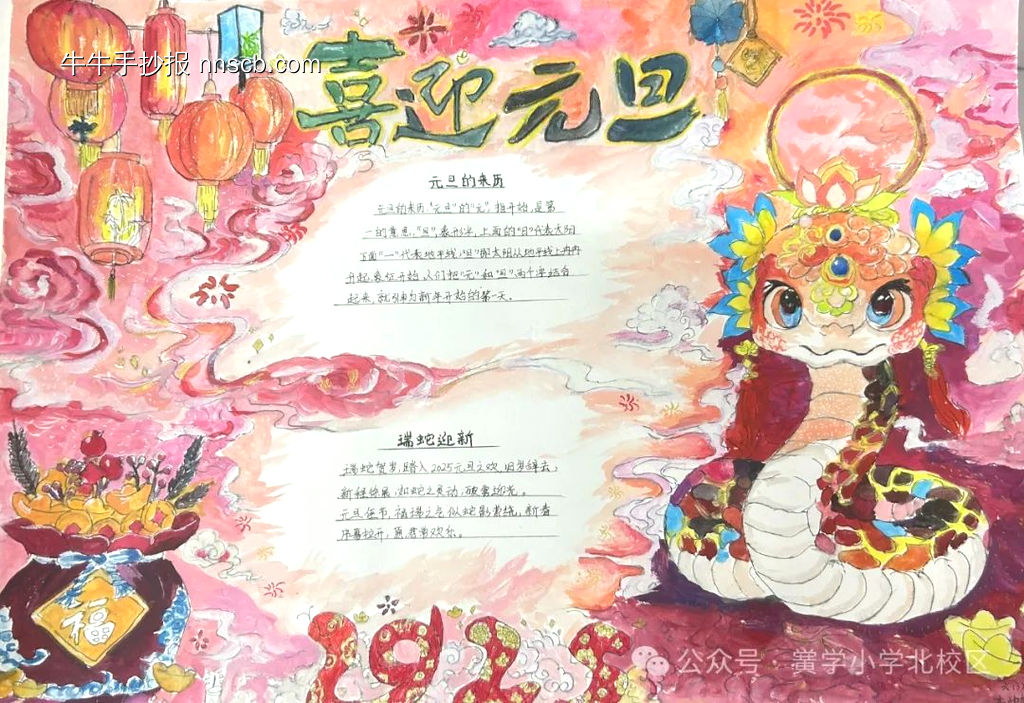 牛牛手抄报 nnscb.com
喜迎元旦
元旦的来历
元旦的来历,"元旦"的"元",指开始,是第
一的意思,"旦",象形字,上面的"日"代表太阳
下面"一"代表地平线,"旦"即太阳从地平线上冉冉
升起,象征开始,人们把"元"和"旦"两个字结合
起来,就引申为新年开始的第一天。
瑞蛇迎新
瑞蛇贺岁,踏入2025元旦之欢,旧岁辞去,
新程绘展,如蛇之灵动,
元旦佳节,福泽之意似蛇影萦绕,新春
序幕拉开,愿君常欢乐。
福
公众号·黉学小学北校区